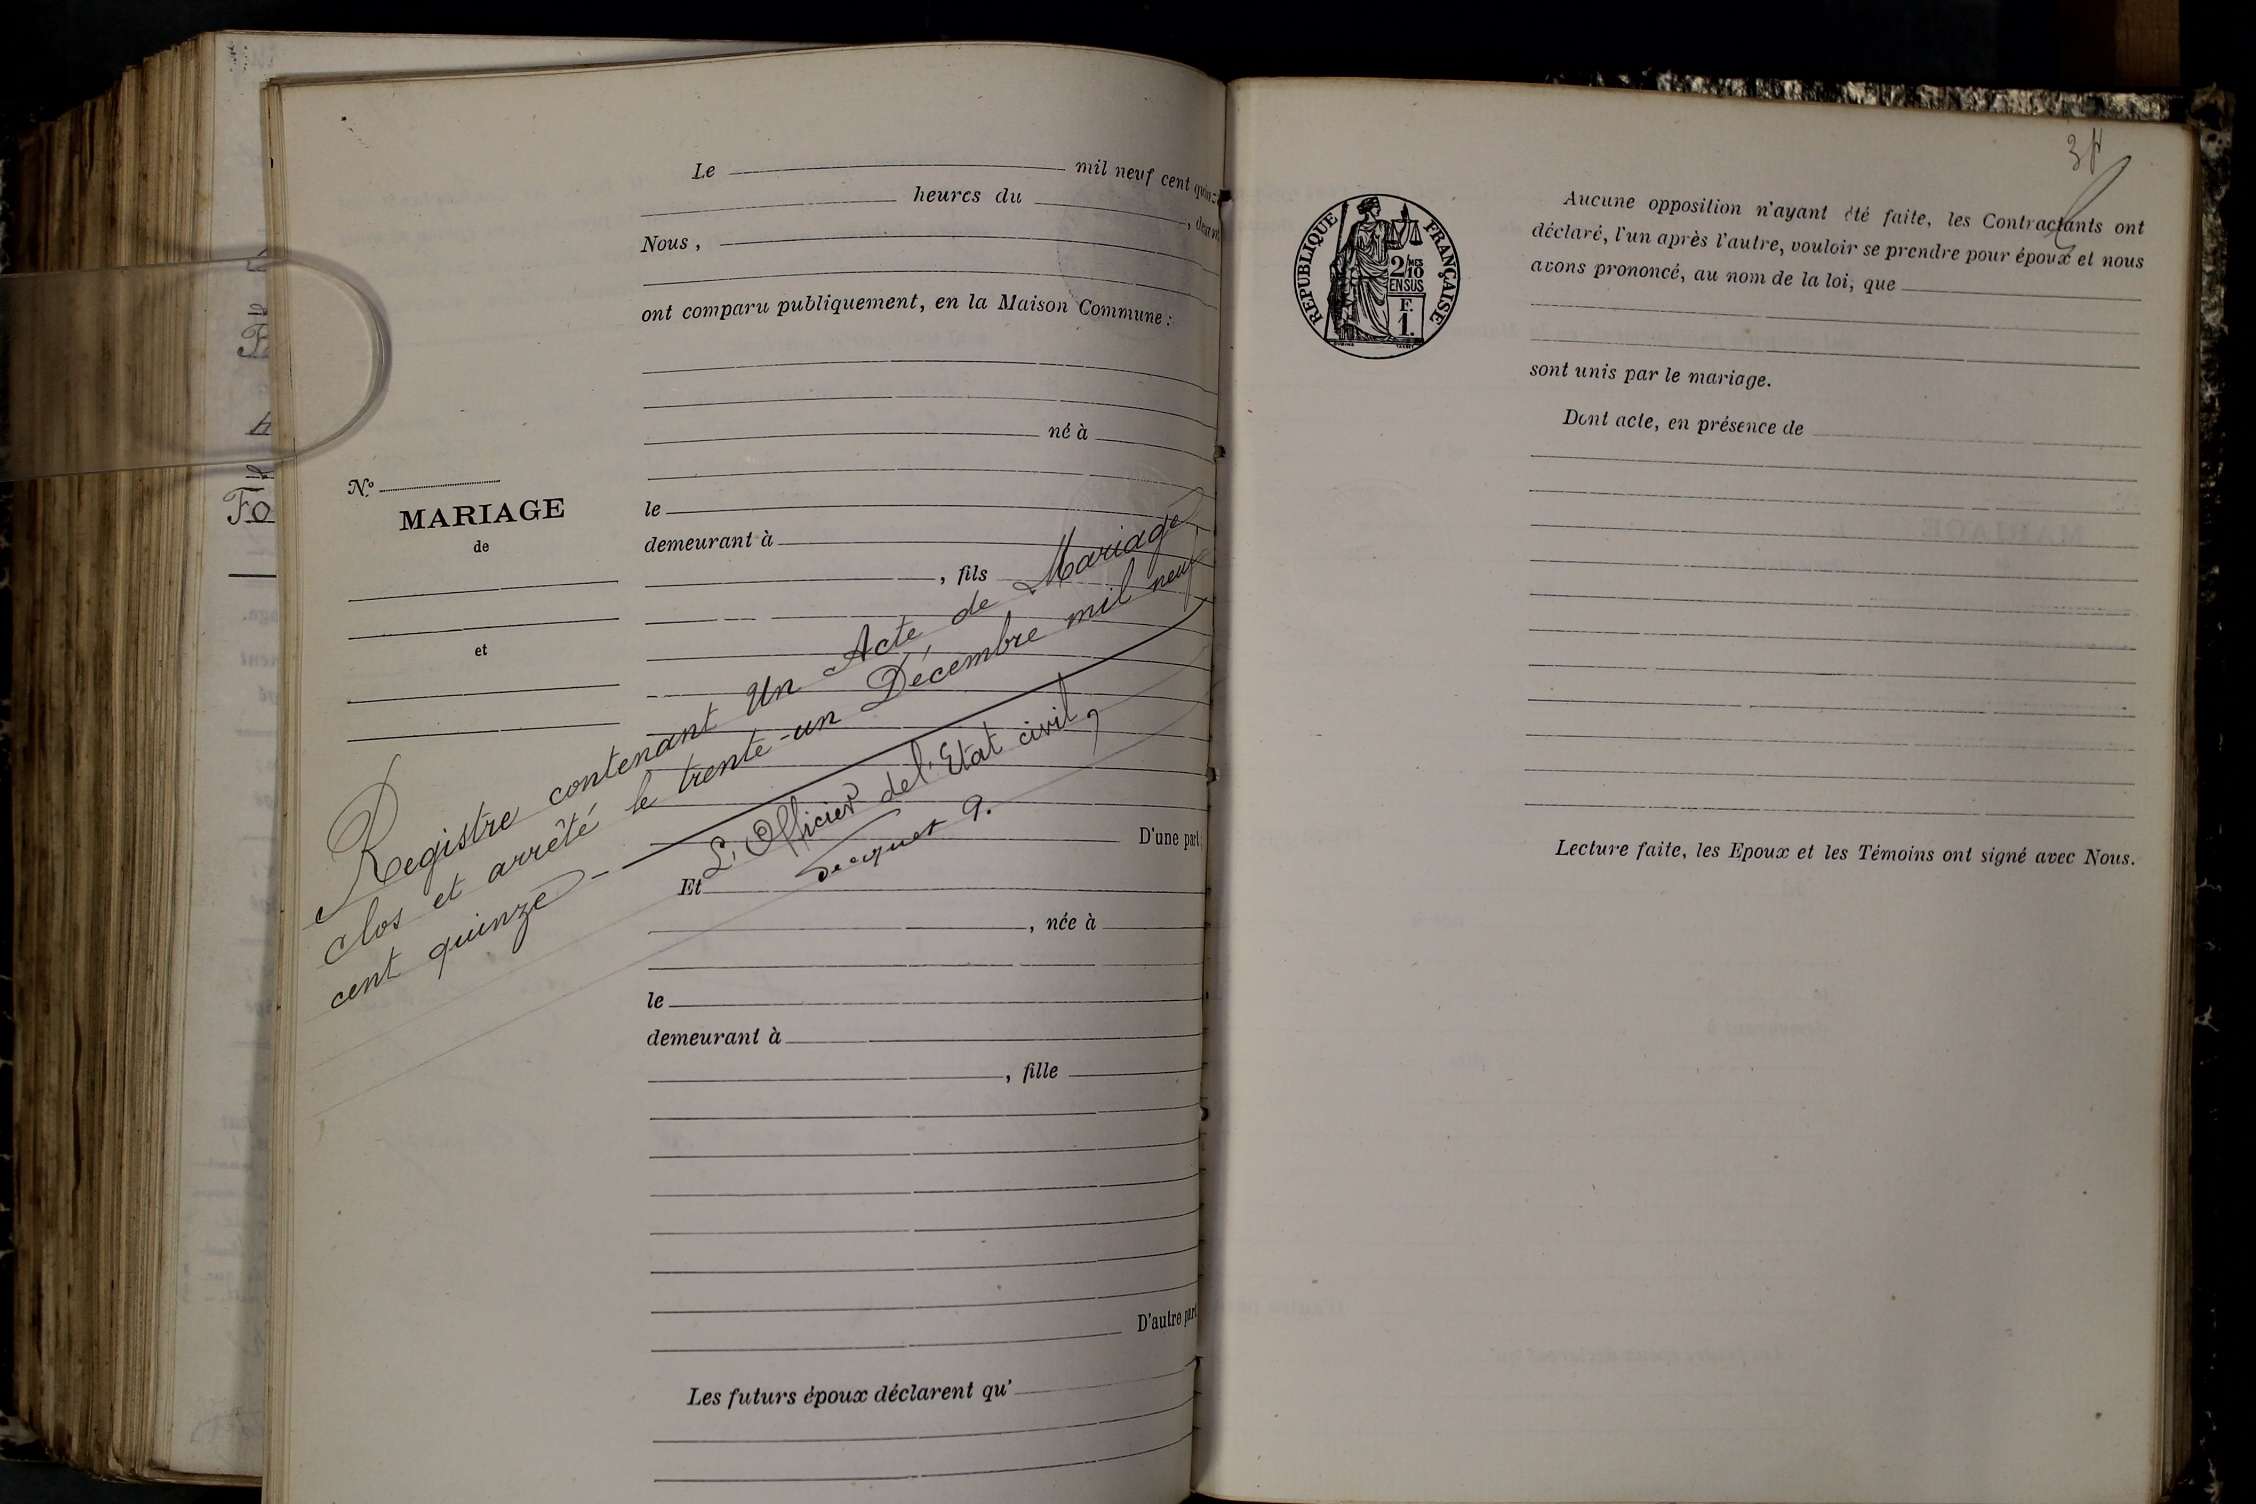 Le mil neuf cent quinze
heures du , devant
Nous ,
ont comparu publiquement, en la Maison Commune :
né à
le
demeurant à
, fils
N.º
MARIAGE
de
et
Registre contenant Un Acte de Mariage
clos et arrêté le trente-un Décembre mil neuf
cent quinze
L'Officier de l'Etat civil,
D'une part ;
Et
, née à
le
demeurant à
, fille
D'autre part
Les futurs époux déclarent qu'
RÉPUBLIQUE FRANÇAISE
2/10 MES
EN SUS
F.
1.
Aucune opposition n'ayant été faite, les Contractants ont
déclaré, l'un après l'autre, vouloir se prendre pour époux et nous
avons prononcé, au nom de la loi, que
sont unis par le mariage.
Dont acte, en présence de
Lecture faite, les Epoux et les Témoins ont signé avec Nous.